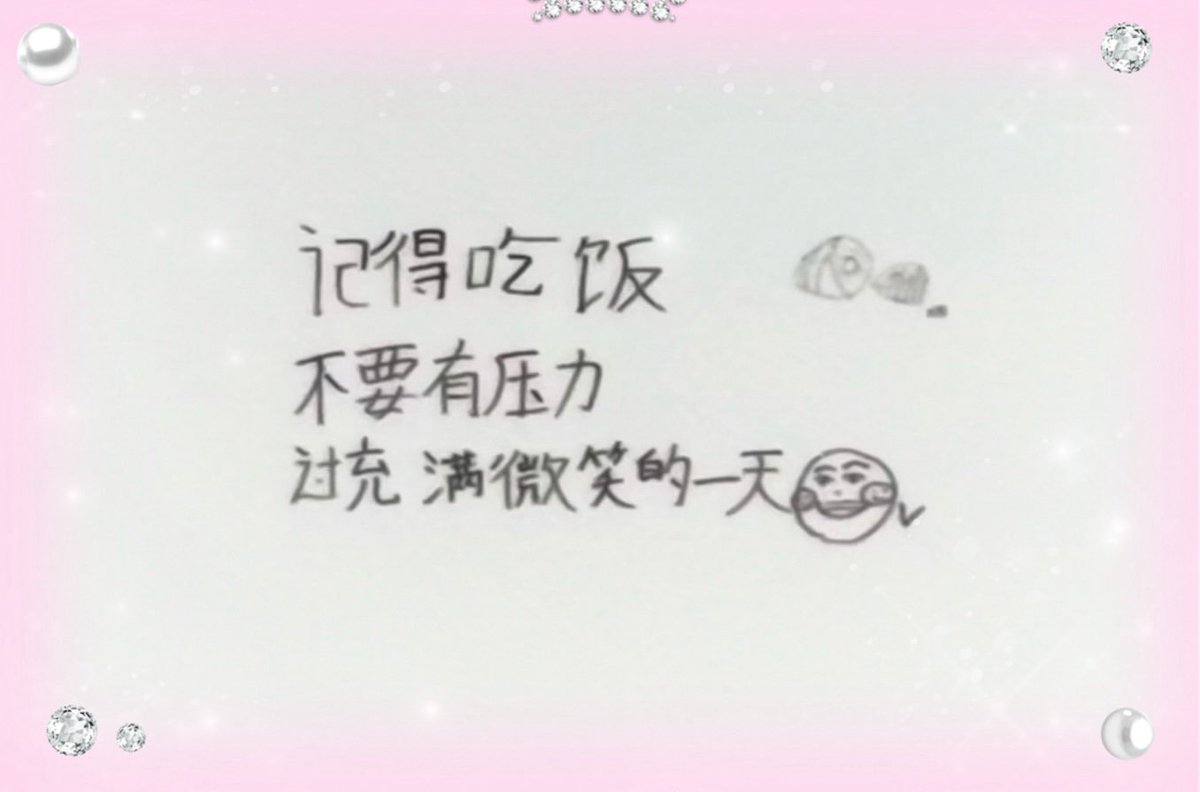 记得吃饭
不要有压力
过充满微笑的一天